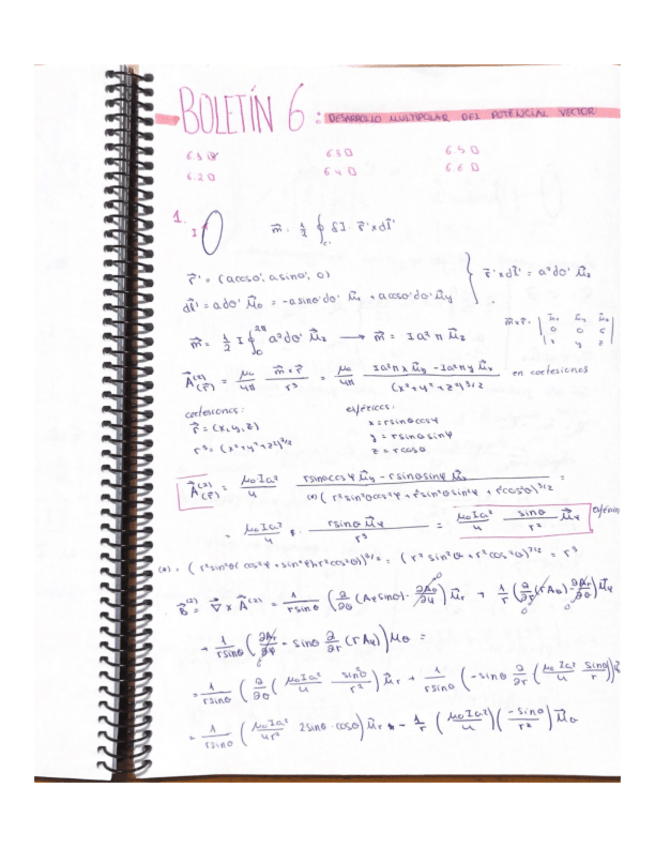 BOLETÍN 6: DESARROLLO MULTIPOLAR DEL POTENCIAL VECTOR
6.1 6.3 6.5
6.2 6.4 6.6
1. I m⃗ = 1/2 ∮_c' δI · r⃗' x dl⃗'
r⃗' = (a cosø', a sinø', 0)
r⃗' x dl⃗' = a² dø' û_z
dl⃗' = a dø' û_ø = -a sinø' dø' û_x + a cosø' dø' û_y
m⃗ x r⃗ = | û_x û_y û_z
0 0 c
x y z |
m⃗ = 1/2 I ∮_0^2π a² dø' û_z → m⃗ = I a² π û_z
A⃗^(2)(r⃗) = μ₀/4π m⃗ x r⃗/r³ = μ₀/4π (Ia²π x û_y - Ia²π y û_x)/(x²+y²+z²)^3/2 en cartesianas
cartesianas: esféricas:
r⃗ = (x, y, z) x = r sinθ cosφ
r³ = (x²+y²+z²)^3/2 y = r sinθ sinφ
z = r cosθ
A⃗^(2)(r⃗) = μ₀Ia²/4 (r sinθ cosφ û_y - r sinθ sinφ û_x)/((*) (r² sin²θ cos²φ + r² sin²θ sin²φ + r² cos²θ)^3/2) =
= μ₀Ia²/4 · r sinθ û_φ/r³ = μ₀Ia²/4 sinθ/r² û_φ
(*) = (r² sin²θ (cos²φ + sin²φ) + r² cos²θ)^3/2 = (r² sin²θ + r² cos²θ)^3/2 = r³
B⃗^(2) = ∇⃗ x A⃗^(2) = 1/(r sinθ) (∂/∂θ (A_φ sinθ) - ∂A_θ/∂φ) û_r + 1/r (∂/∂r (r A_θ) - ∂A_r/∂θ) û_φ
+ 1/(r sinθ) (∂A_r/∂φ - sinθ ∂/∂r (r A_φ)) û_θ =
= 1/(r sinθ) (∂/∂θ (μ₀Ia²/4 sin²θ/r²)) û_r + 1/(r sinθ) (-sinθ ∂/∂r (μ₀Ia²/4 sinθ/r))
= 1/(r sinθ) (μ₀Ia²/4r² 2 sinθ · cosθ) û_r - 1/r (μ₀Ia²/4)(-sinθ/r²) û_θ